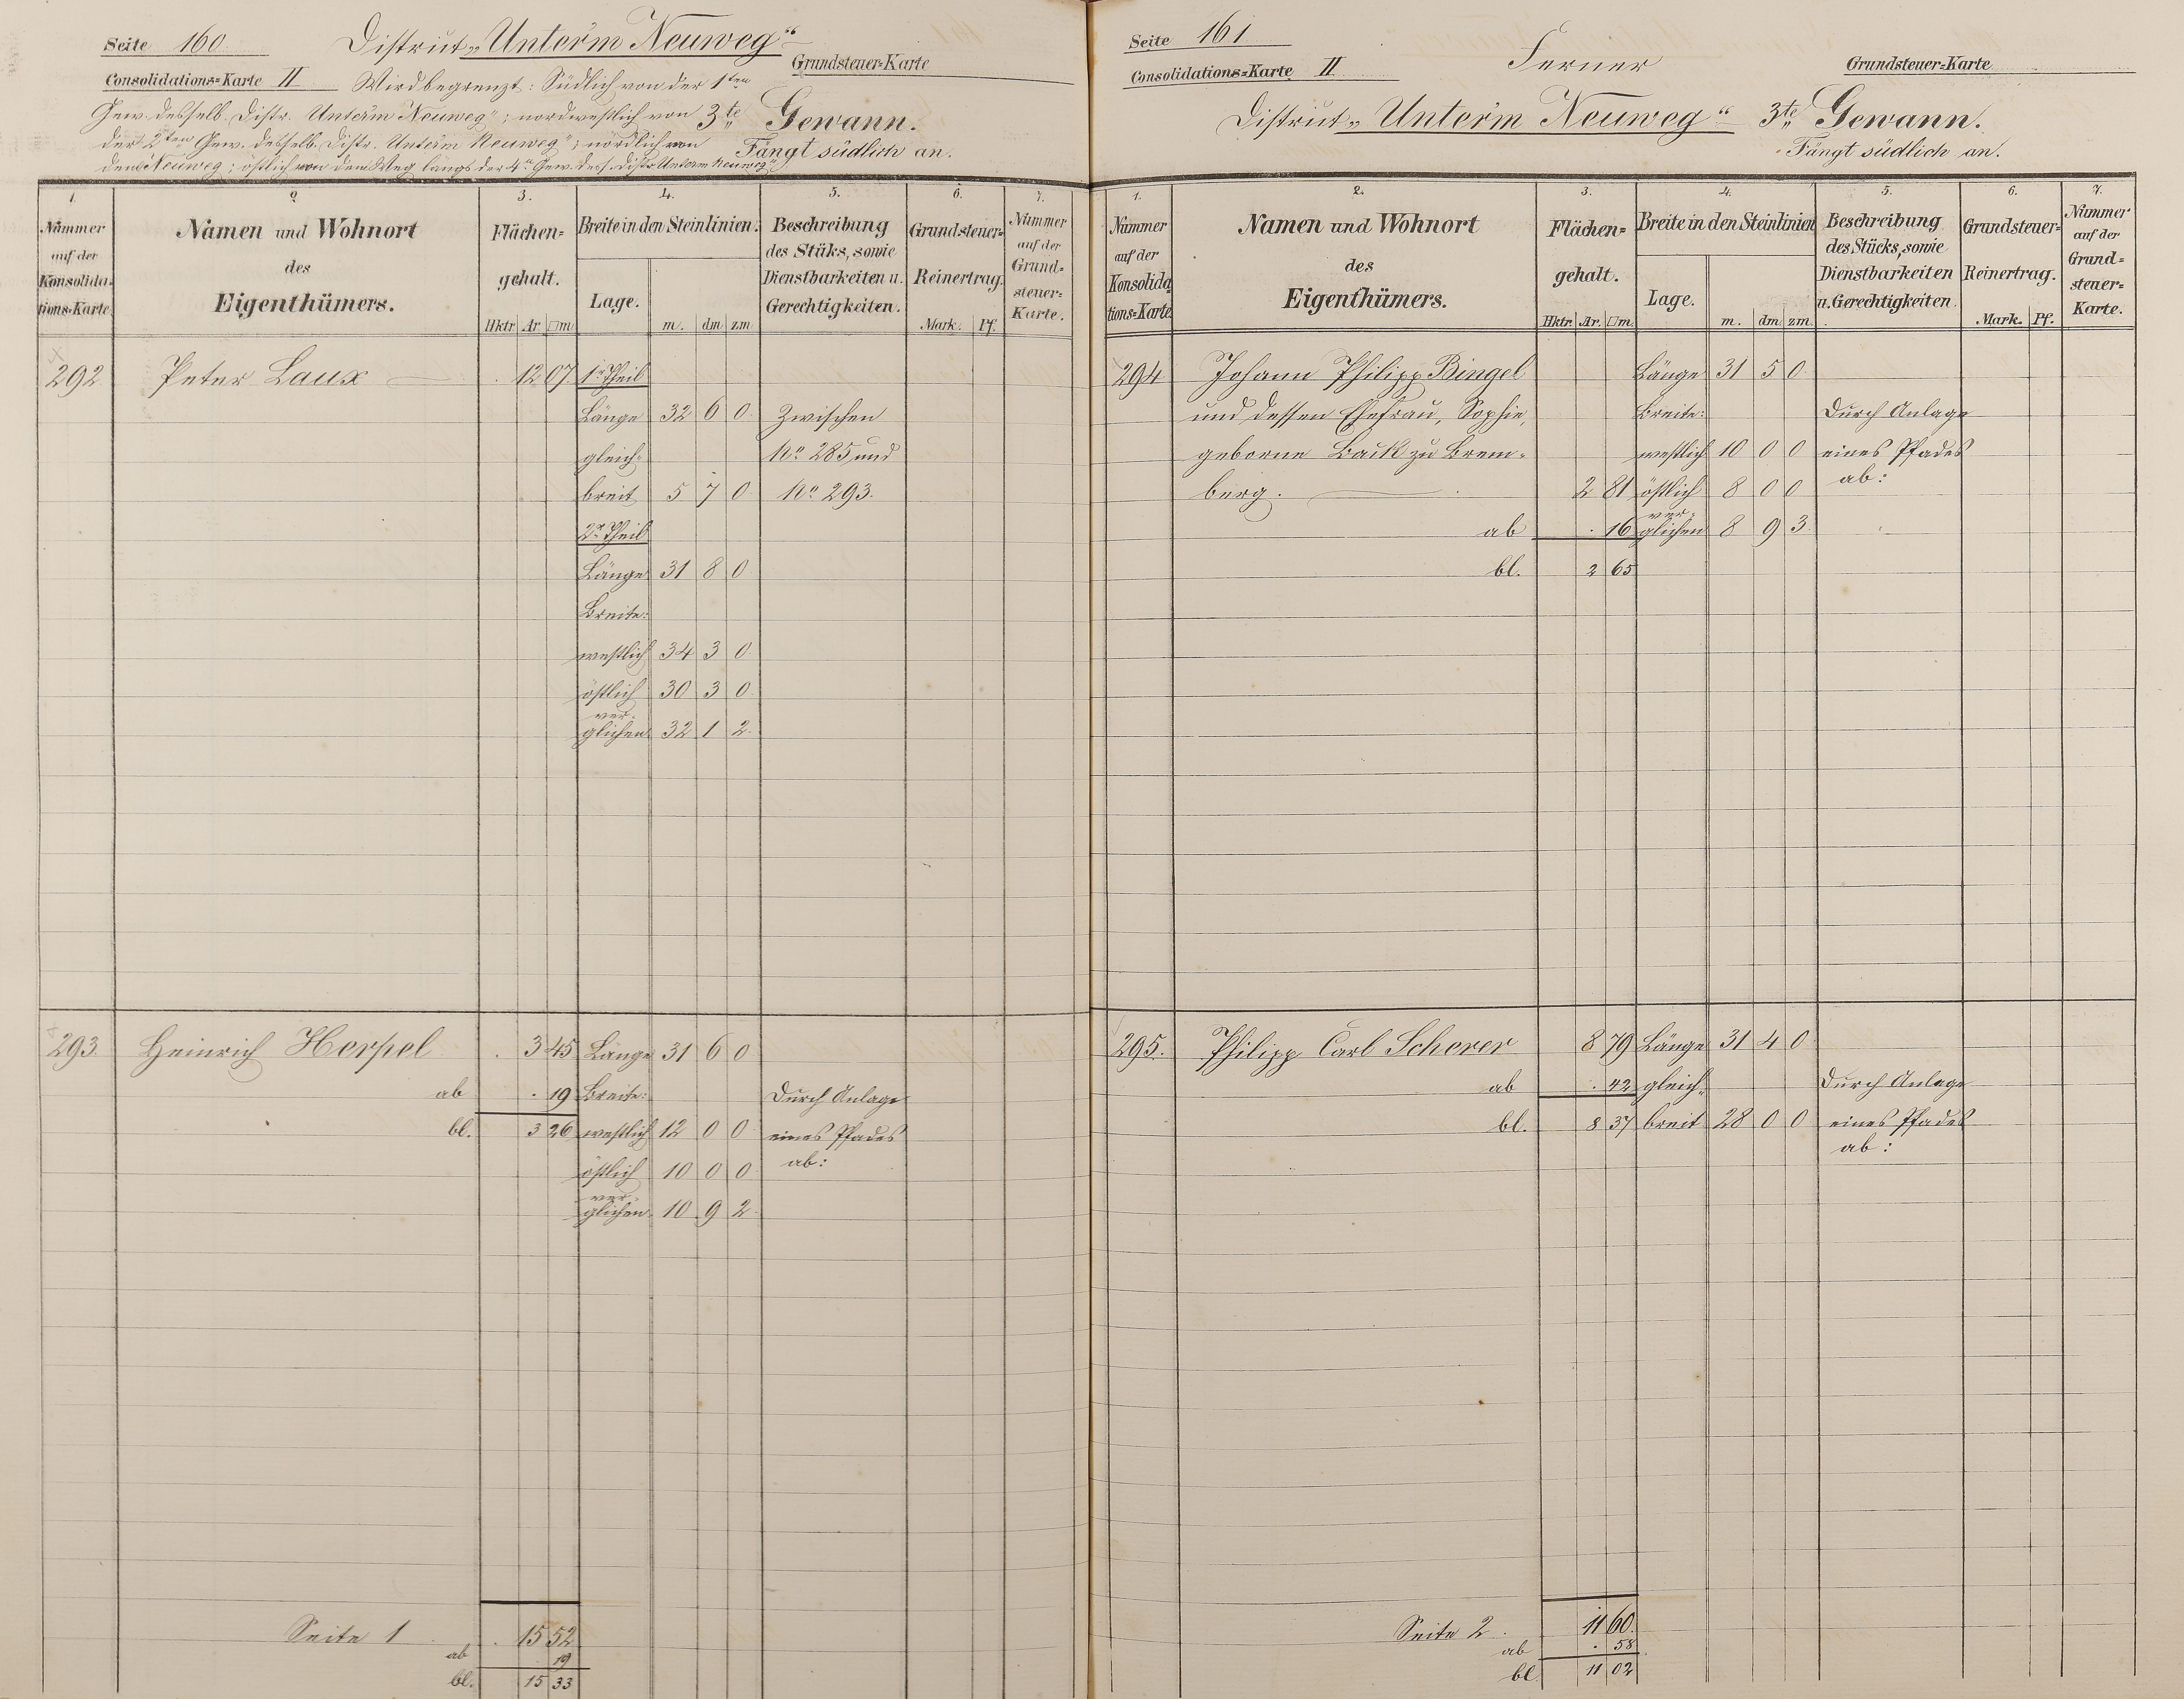 Seite 160.
District „Unterm Neuweg"
Grundsteuer=Karte
Consolidations=Karte II
Wird begrenzt: Südlich von der 1ten
Gew. desselb. Distr. Unterm Neuweg"; nordwestlich von
3te Gewann.
der 2ten Gew. desselb. Distr. Unterm Neuweg"; nördlich von
Fängt südlich an.
dem Neuweg; östlich von dem Weg längs der 4n Gew. dess. Distr. Unterm Neuweg"
1. 2. 3. 4. 5. 6. 7.
Nummer auf der Konsolidations=Karte
Namen und Wohnort des Eigenthümers.
Flächen=gehalt.
Hktr Ar □m
Breite in den Steinlinien.
Lage. m. dm zm
Beschreibung des Stüks, sowie Dienstbarkeiten u. Gerechtigkeiten.
Grundsteuer=Reinertrag.
Mark. Pf.
Nummer auf der Grund=steuer=Karte.
292 Peter Laux . 12 07 1r Theil
Länge 32 6 0 Zwischen
gleich= No 285 und
breit 5 7 0 No 293.
2r Theil
Länge 31 8 0
Breite:
westlich 34 3 0
östlich 30 3 0
ver=
glichen 32 1 2
293. Heinrich Herpel . 3 45 Länge 31 6 0
ab . 19 Breite: Durch Anlage
bl. 3 26 westlich 12 0 0 eines Pfades
östlich 10 0 0 ab:
ver=
glichen 10 9 2
Seite 1 . 15 52
ab 19
bl. 15 33
Seite 161
Ferner
Grundsteuer=Karte
Consolidations=Karte II
District „Unterm Neuweg" 3te Gewann.
Fängt südlich an.
1. 2. 3. 4. 5. 6. 7.
Nummer auf der Konsolidations=Karte
Namen und Wohnort des Eigenthümers.
Flächen=gehalt.
Hktr. Ar. □m.
Breite in den Steinlinien
Lage. m. dm zm.
Beschreibung des Stücks, sowie Dienstbarkeiten u. Gerechtigkeiten.
Grundsteuer=Reinertrag.
Mark. Pf.
Nummer auf der Grund=steuer=Karte.
294 Johann Philipp Bingel Länge 31 5 0
und dessen Ehefrau, Sophie, Breite: Durch Anlage
geborne Back zu Brem= westlich 10 0 0 eines Pfades
berg. 2 81 östlich 8 0 0 ab:
ver=
ab . 16 glichen 8 9 3
bl. 2 65
295. Philipp Carl Scherer 8 79 Länge 31 4 0
ab . 42 gleich= Durch Anlage
bl. 8 37 breit 28 0 0 eines Pfades
ab:
Seite 2. 11 60.
ab . 58
bl. 11 02